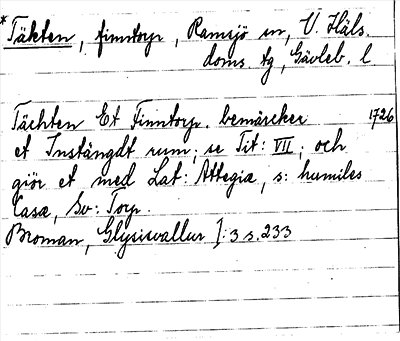 *Täkten, finntorp, Ramsjö sn, V. Häls.
doms. tg, Gävleb. l
Tächten Et Finntorp. bemärcker 1726
et Instängdt rum; se Tit: VII; och
giör et med Lat: Attegiæ, s: humiles
Casæ, Sv: Torp.
Broman, Glysisvallur I:3 s. 233